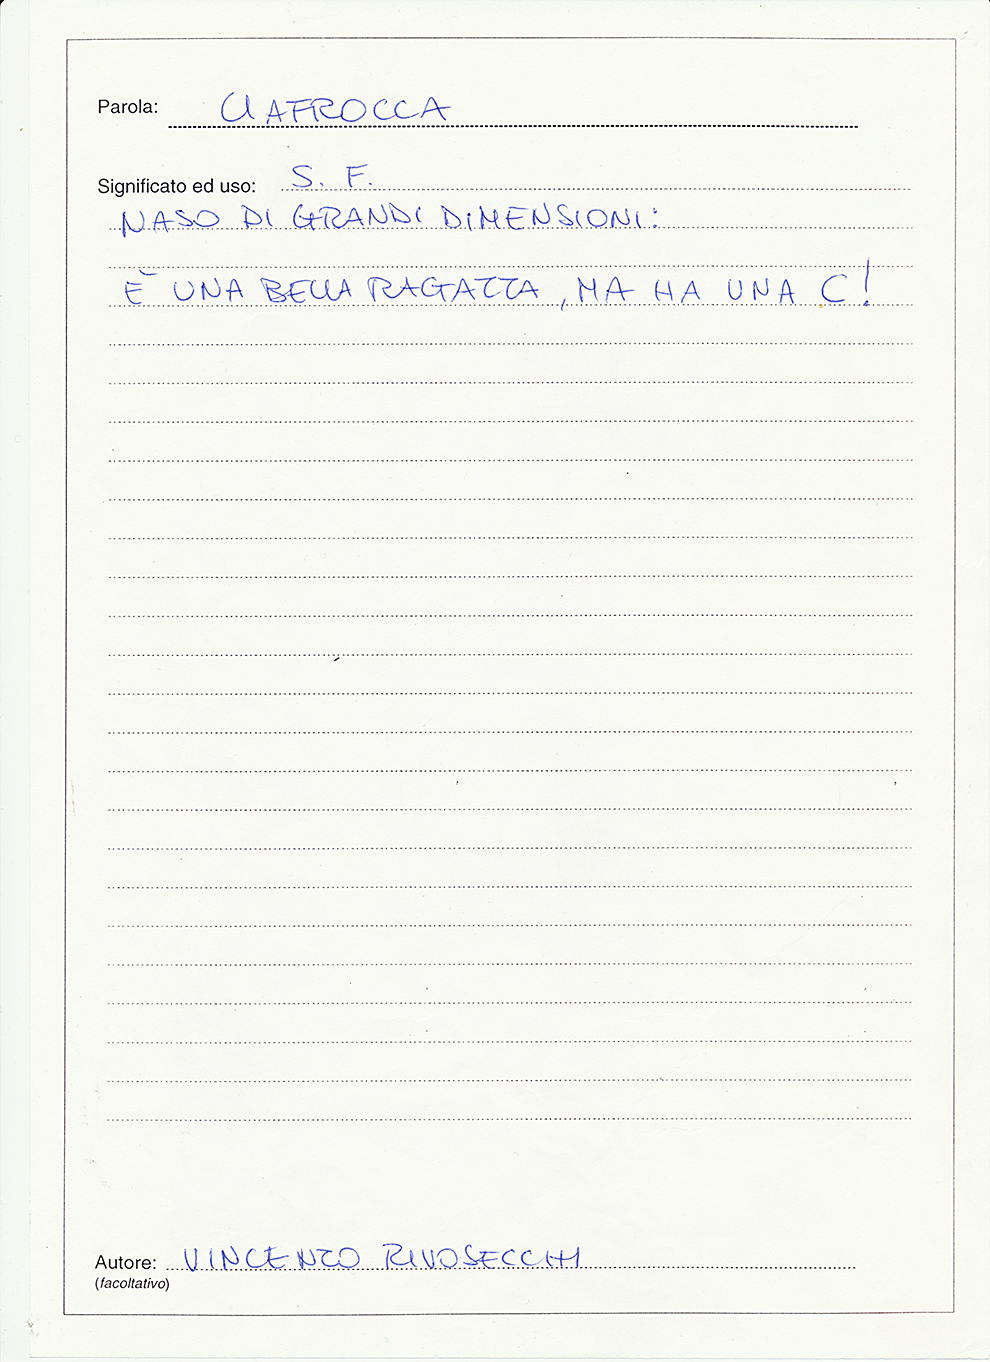 Parola: CIAFROCCA
Significato ed uso: S. F.
NASO DI GRANDI DIMENSIONI:
È UNA BELLA RAGAZZA, MA HA UNA C!
Autore: VINCENZO RIVOSECCHI
(facoltativo)